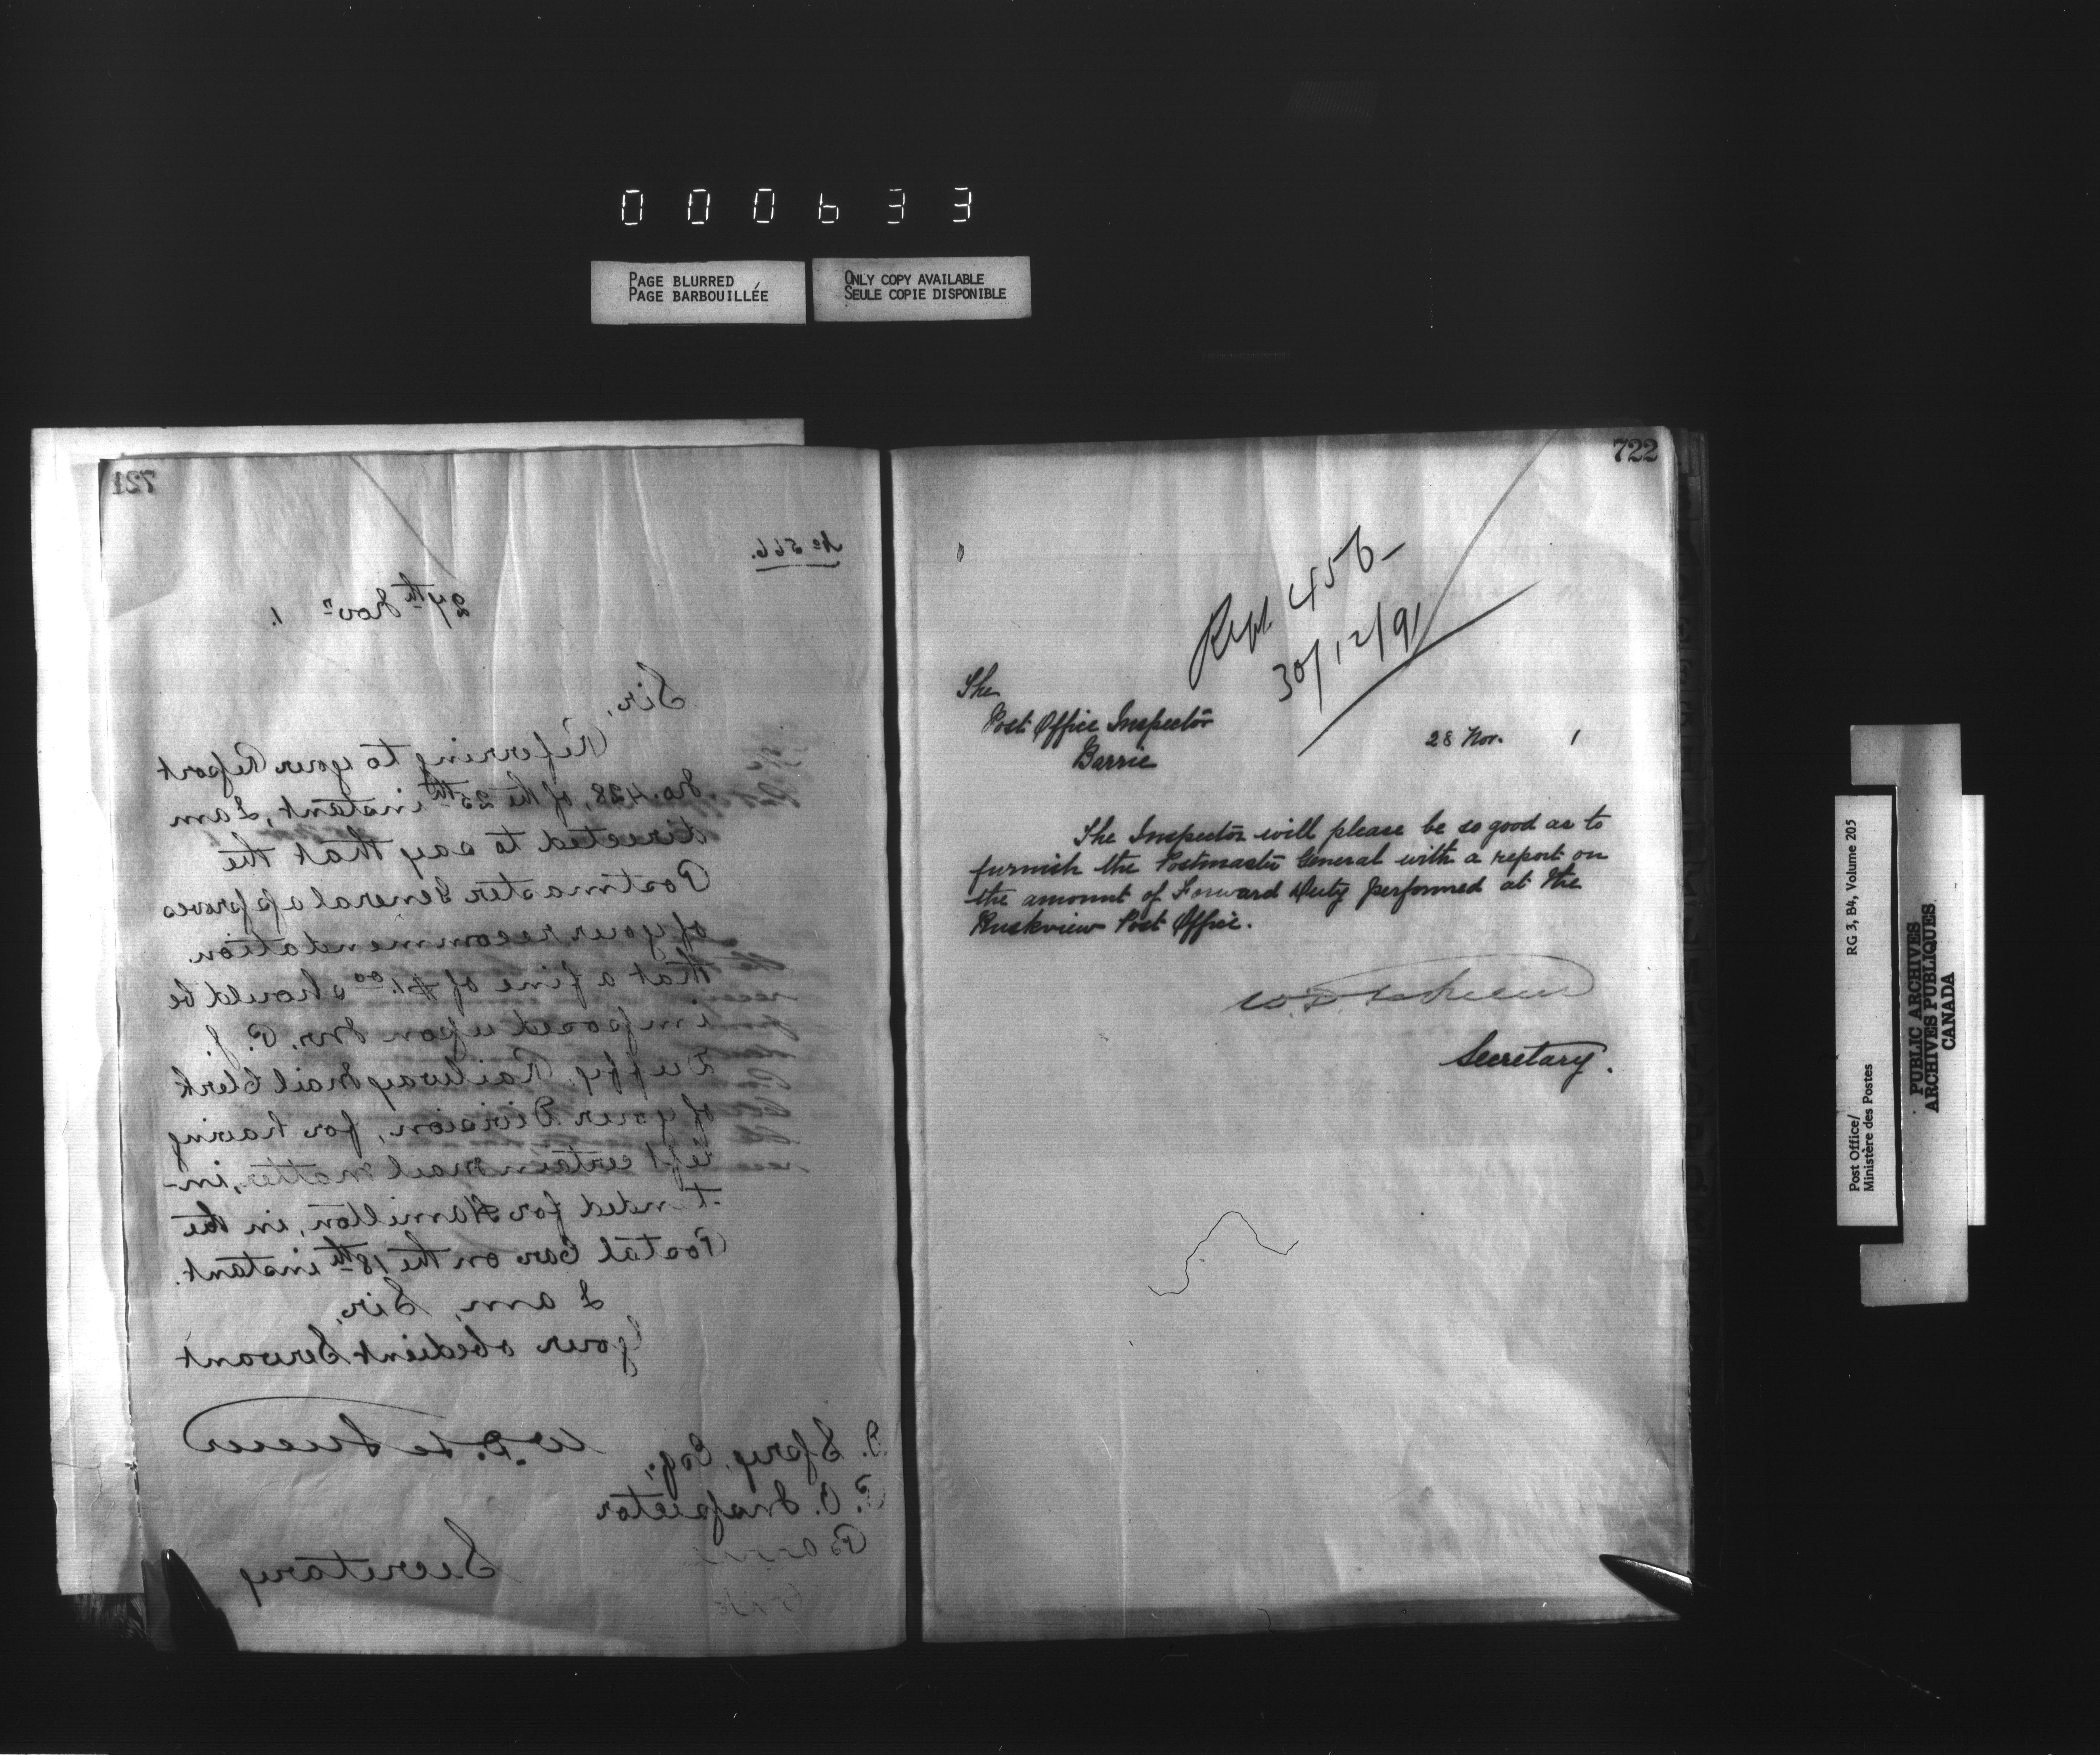 000633
PAGE BLURRED
PAGE BARBOUILLÉE
ONLY COPY AVAILABLE
SEULE COPIE DISPONIBLE
721
No 566.
27th Novr 1.
Sir,
Referring to your Report
No. 428, of the 25th instant, I am
directed to say that the
Postmaster General approves
of your recommendation
that a fine of $1.00 should be
imposed upon Mr. P. J.
Duffy, Railway Mail Clerk
of your Division, for having
left certain mail matter, in-
tended for Hamilton, in the
Postal Car on the 18th instant.
I am, Sir,
Your obedient Servant
W.D. Le Sueur
Secretary
D. Spry, Esq.,
P. O. Inspector
Barrie
722
Rept. 456
30/12/91
The
Post Office Inspector
Barrie
28 Nov. 1
The Inspector will please be so good as to
furnish the Postmaster General with a report on
the amount of Forward Duty performed at the
Ruskview Post Office.
W.D. Le Sueur
Secretary.
Post Office/
Ministère des Postes
RG 3, B4, Volume 205
PUBLIC ARCHIVES
ARCHIVES PUBLIQUES
CANADA